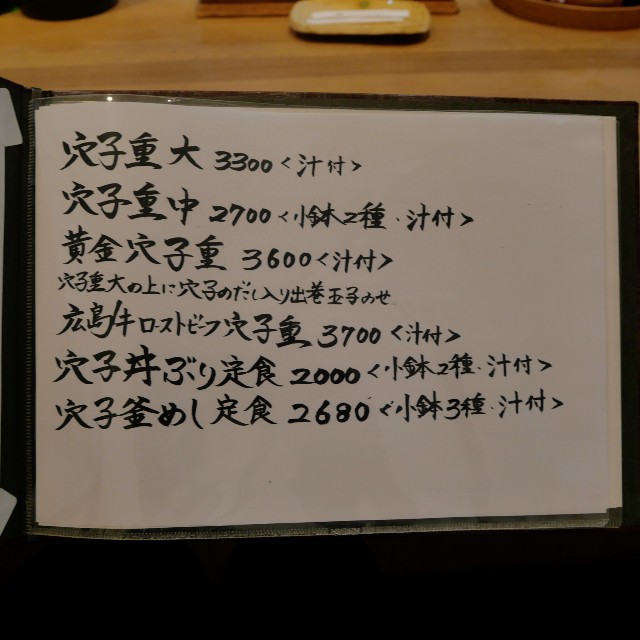 穴子重大 3300<汁付>
穴子重中 2700<小鉢2種・汁付>
黄金穴子重 3600<汁付>
穴子重大の上に穴子のだし入り出巻玉子のせ
広島牛ローストビーフ穴子重 3700<汁付>
穴子丼ぶり定食 2000<小鉢2種・汁付>
穴子釜めし定食 2680<小鉢3種・汁付>